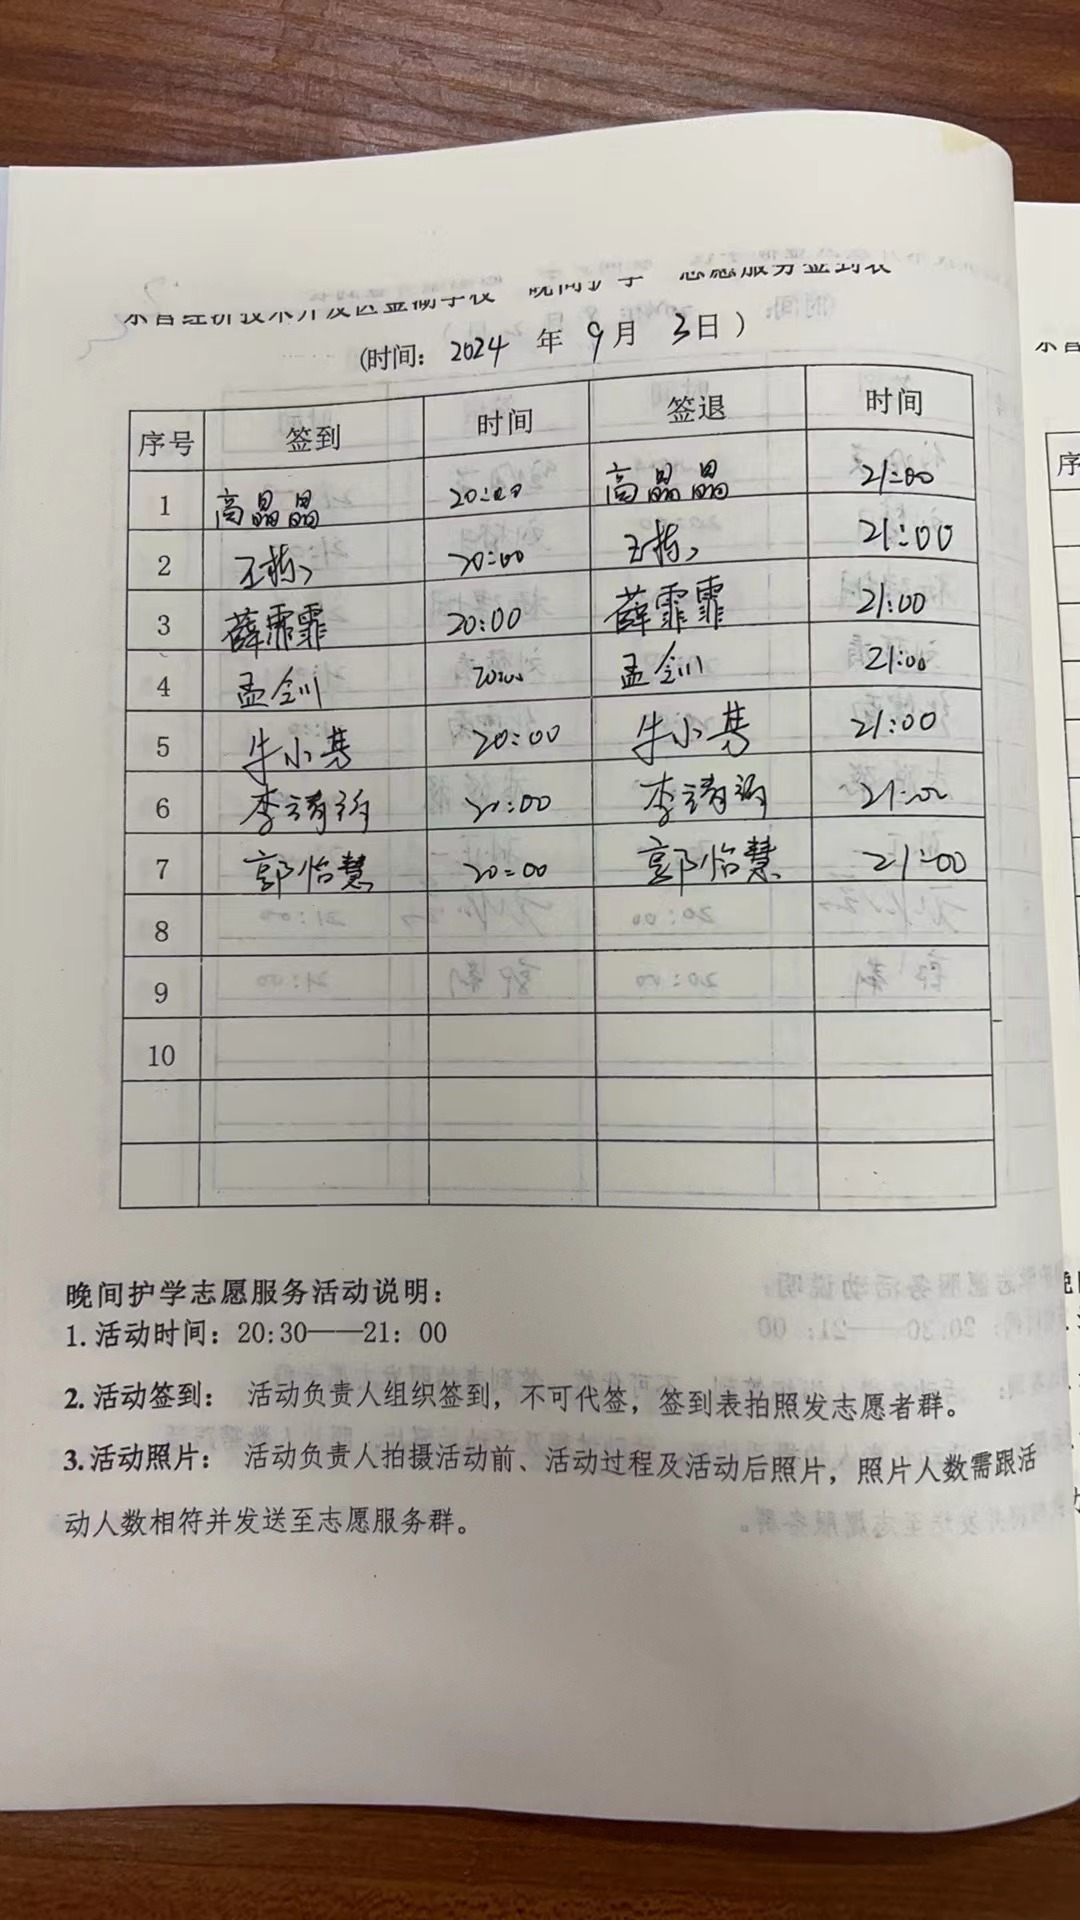 (时间: 2024 年 9月 3日)
序号 签到 时间 签退 时间
1 高晶晶 20:00 高晶晶 21:00
2 20:00 21:00
3 薛霏霏 20:00 薛霏霏 21:00
4 孟剑 20:00 孟剑 21:00
5 牛小 20:00 牛小 21:00
6 李 20:00 李 21:00
7 郭怡慧 20:00 郭怡慧 21:00
8
9
10
晚间护学志愿服务活动说明:
1.活动时间: 20:30——21: 00
2.活动签到: 活动负责人组织签到, 不可代签, 签到表拍照发志愿者群。
3.活动照片: 活动负责人拍摄活动前、活动过程及活动后照片, 照片人数需跟活
动人数相符并发送至志愿服务群。